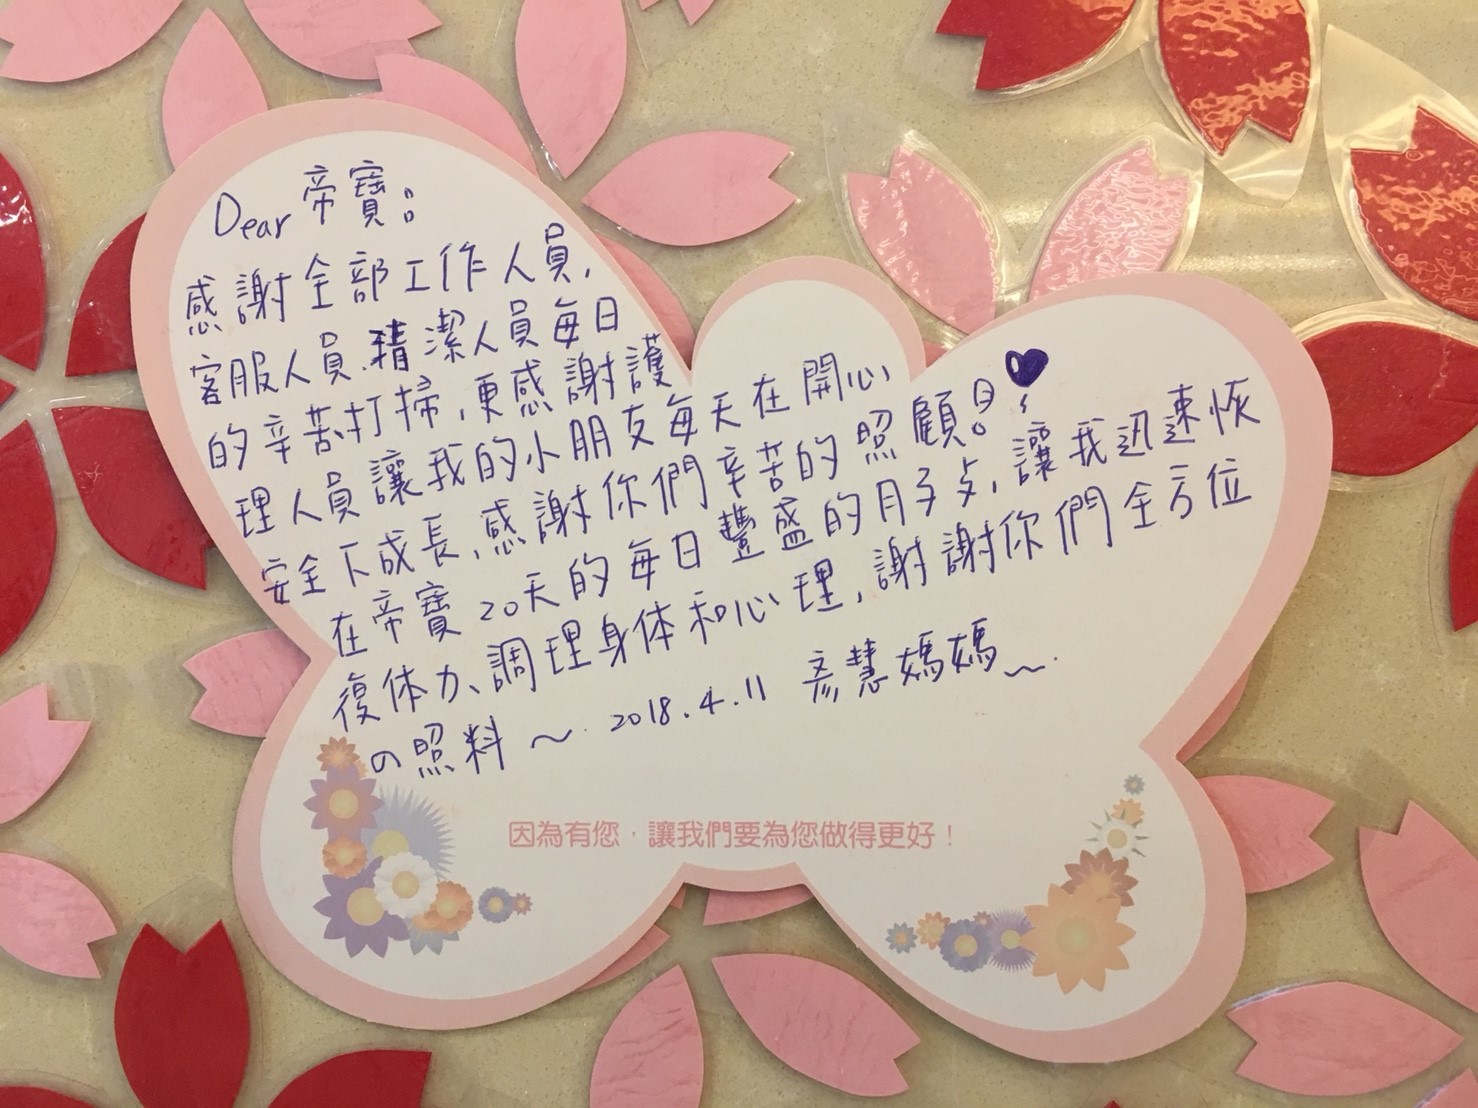 Dear 帝寶:
感謝全部工作人員,
客服人員.精潔人員每日
的辛苦打掃,更感謝護
理人員讓我的小朋友每天在開心
安全下成長,感謝你們辛苦的照顧!
在帝寶20天的每日豐盛的月子餐,讓我迅速恢
復体力、調理身体和心理,謝謝你們全方位
の照料~ 2018.4.11 彥慧媽媽~
因為有您,讓我們要為您做得更好!